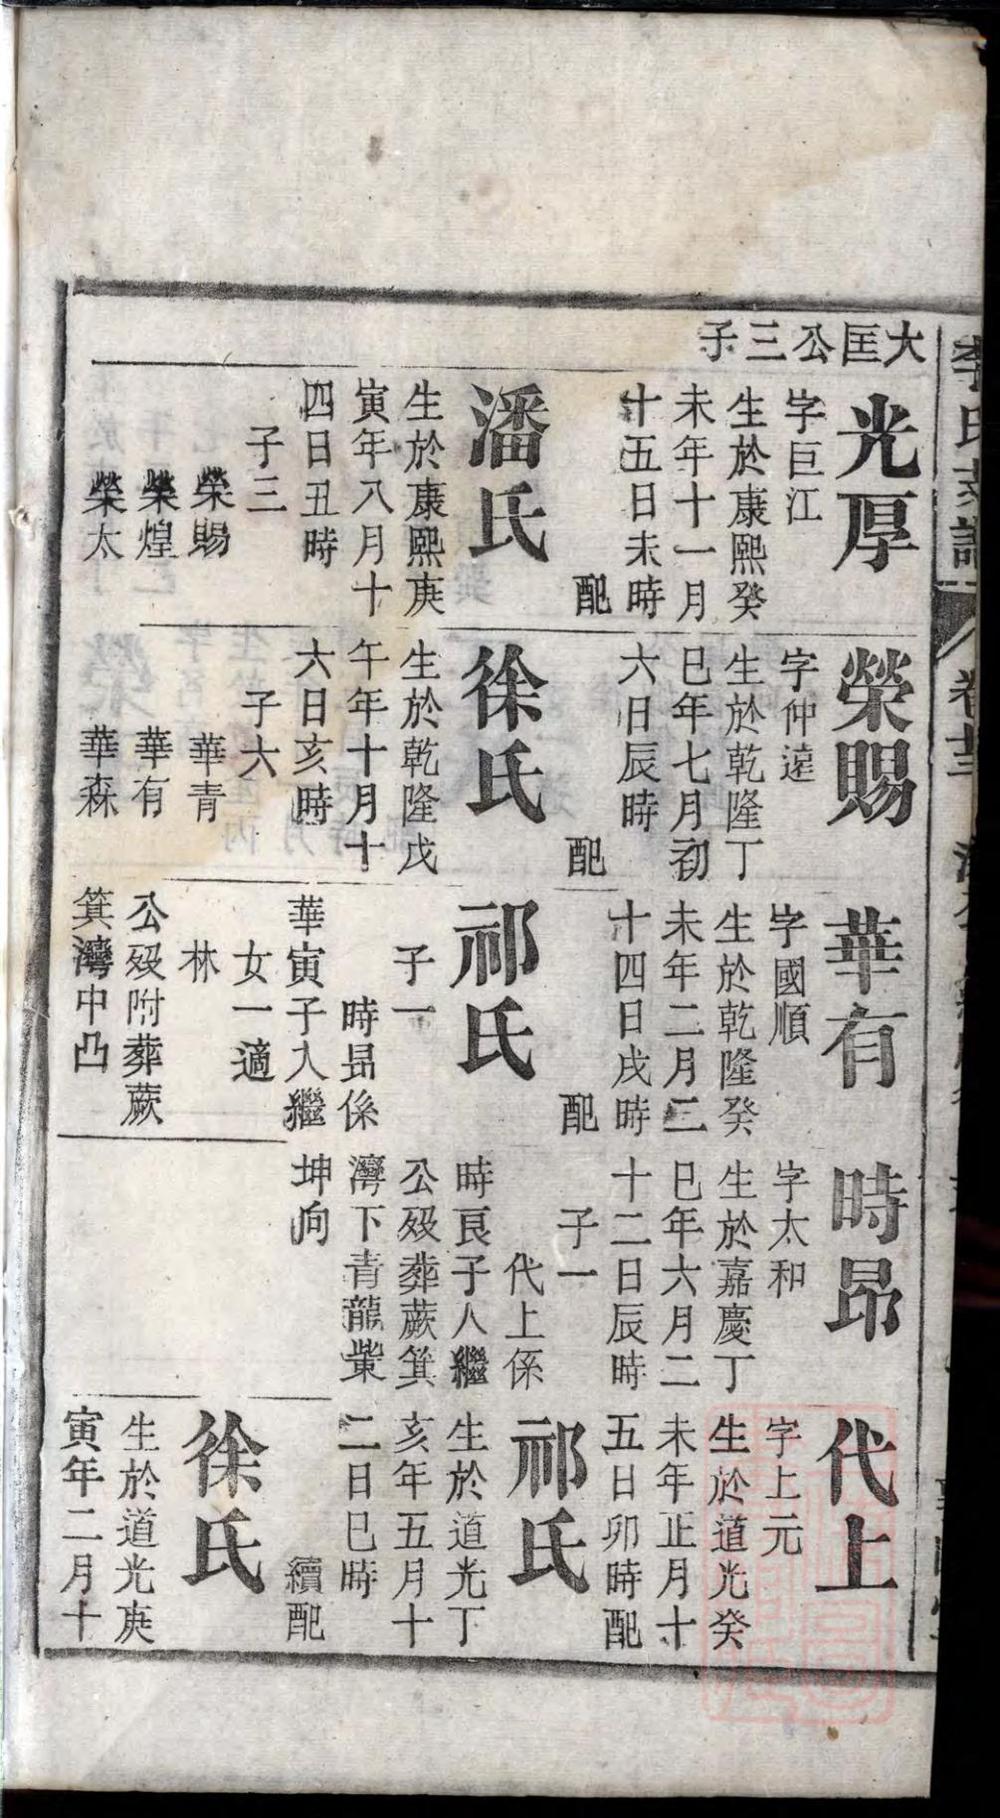 大匡公三子
光厚
字巨江
生於康熙癸
未年十一月
十五日未時
配
潘氏
生於康熙庚
寅年八月十
四日丑時
子三
榮賜
榮煌
榮太
榮賜
字仲遠
生於乾隆丁
巳年七月初
六日辰時
配
徐氏
生於乾隆戊
午年十月十
六日亥時
子六
華青
華有
華森
華有
字國順
生於乾隆癸
未年二月二
十四日戌時
配
祁氏
子一
時昻係
華寅子入繼
女一適
林
公殁附葬蕨
箕灣中凸
時昻
字太和
生於嘉慶丁
巳年六月二
十二日辰時
子一
代上係
時良子入繼
公殁葬蕨箕
灣下青龍業
坤向
代上
字上元
生於道光癸
未年正月十
五日卯時配
祁氏
生於道光丁
亥年五月十
二日巳時
續配
徐氏
生於道光庚
寅年二月十